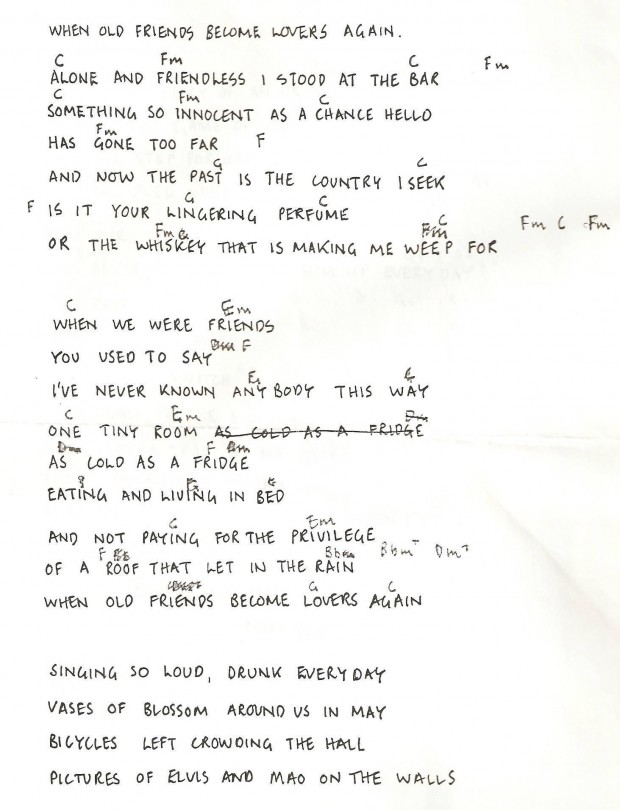 WHEN OLD FRIENDS BECOME LOVERS AGAIN.
C Fm C Fm
ALONE AND FRIENDLESS I STOOD AT THE BAR
C Fm C
SOMETHING SO INNOCENT AS A CHANCE HELLO
Fm F
HAS GONE TOO FAR
G C
AND NOW THE PAST IS THE COUNTRY I SEEK
F G C
IS IT YOUR LINGERING PERFUME
Fm G C Fm C Fm
OR THE WHISKEY THAT IS MAKING ME WEEP FOR
C Em
WHEN WE WERE FRIENDS
F
YOU USED TO SAY
I'VE NEVER KNOWN ANYBODY THIS WAY
C Em
ONE TINY ROOM AS COLD AS A FRIDGE
F
AS COLD AS A FRIDGE
EATING AND LIVING IN BED
C Em
AND NOT PAYING FOR THE PRIVILEGE
F Bbm Bbm7 Dm7
OF A ROOF THAT LET IN THE RAIN
G C
WHEN OLD FRIENDS BECOME LOVERS AGAIN
SINGING SO LOUD, DRUNK EVERY DAY
VASES OF BLOSSOM AROUND US IN MAY
BICYCLES LEFT CROWDING THE HALL
PICTURES OF ELVIS AND MAO ON THE WALLS